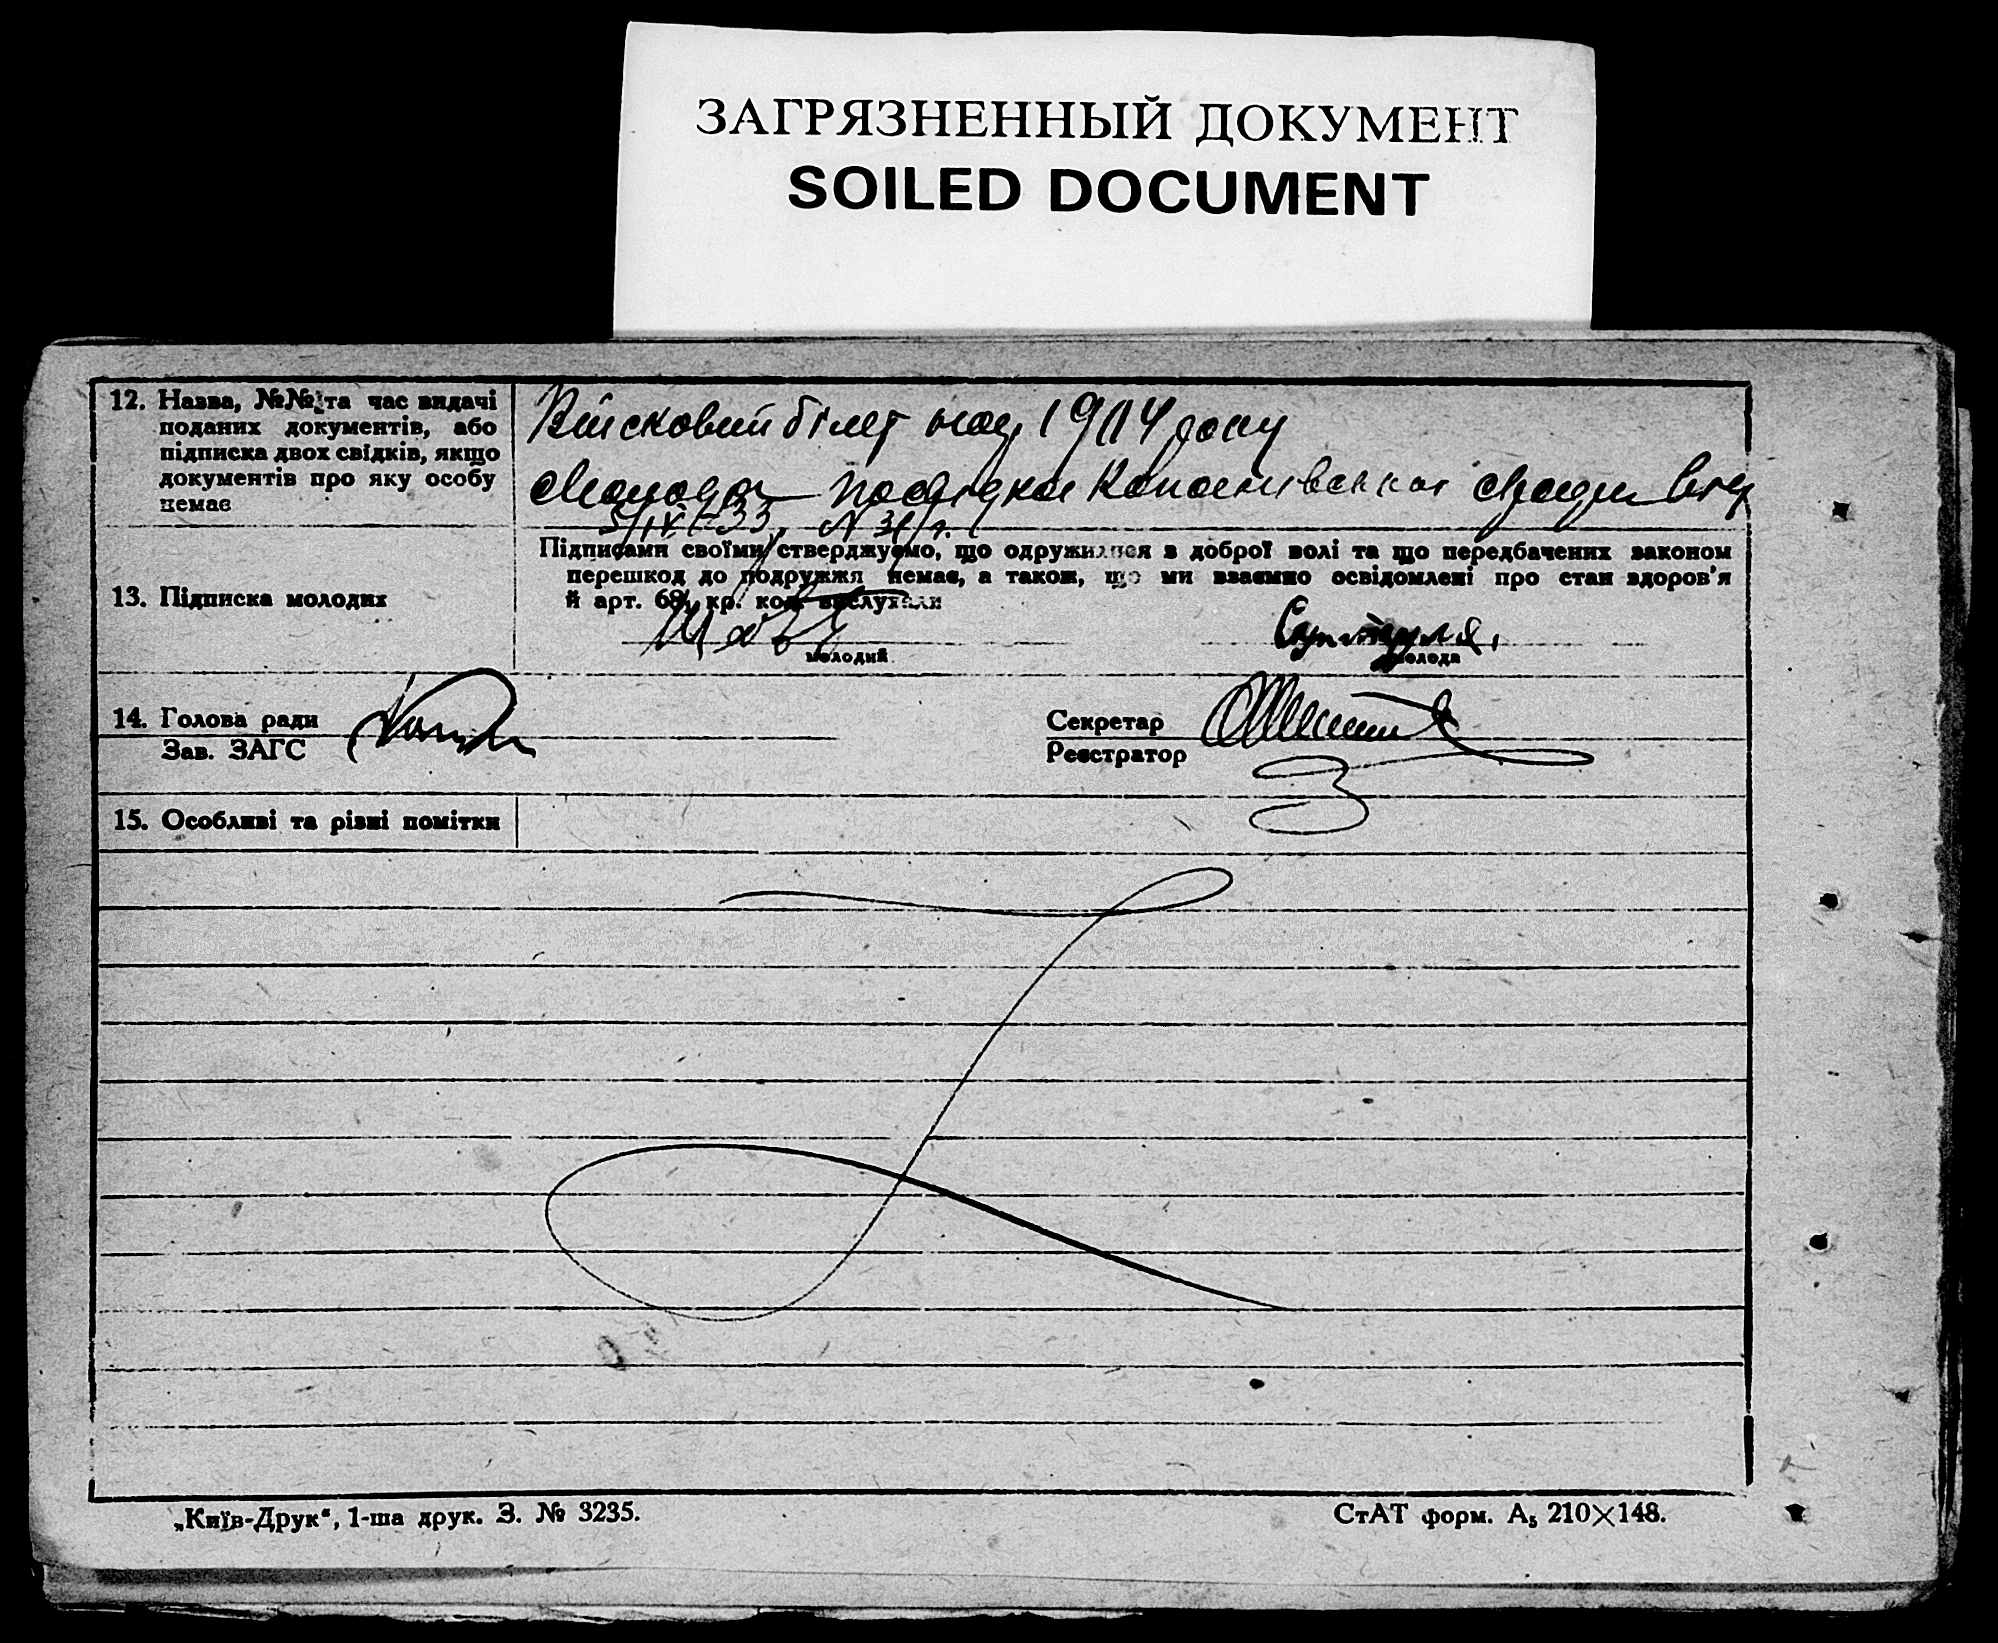 ЗАГРЯЗНЕННЫЙ ДОКУМЕНТ
SOILED DOCUMENT
12. Назва, №№ та час видачі
поданих документів, або
підписка двох свідків, якщо
документів про яку особу
немає
Війсковий білет 1904 року
Молода
5/IV-33 N
Підписами своїми стверджуємо, що одружилися з доброї волі та що передбачених законом
перешкод до подружжя немає, а також, що ми взаємно освідомлені про стан здоров'я
й арт. 68, кр. код. вислухали
13. Підписка молодих
молодий
молода
14. Голова ради
Зав. ЗАГС
Секретар
Реєстратор
15. Особливі та різні помітки
„Київ-Друк“, 1-ша друк. З. № 3235.
СтАТ форм. А₅ 210×148.